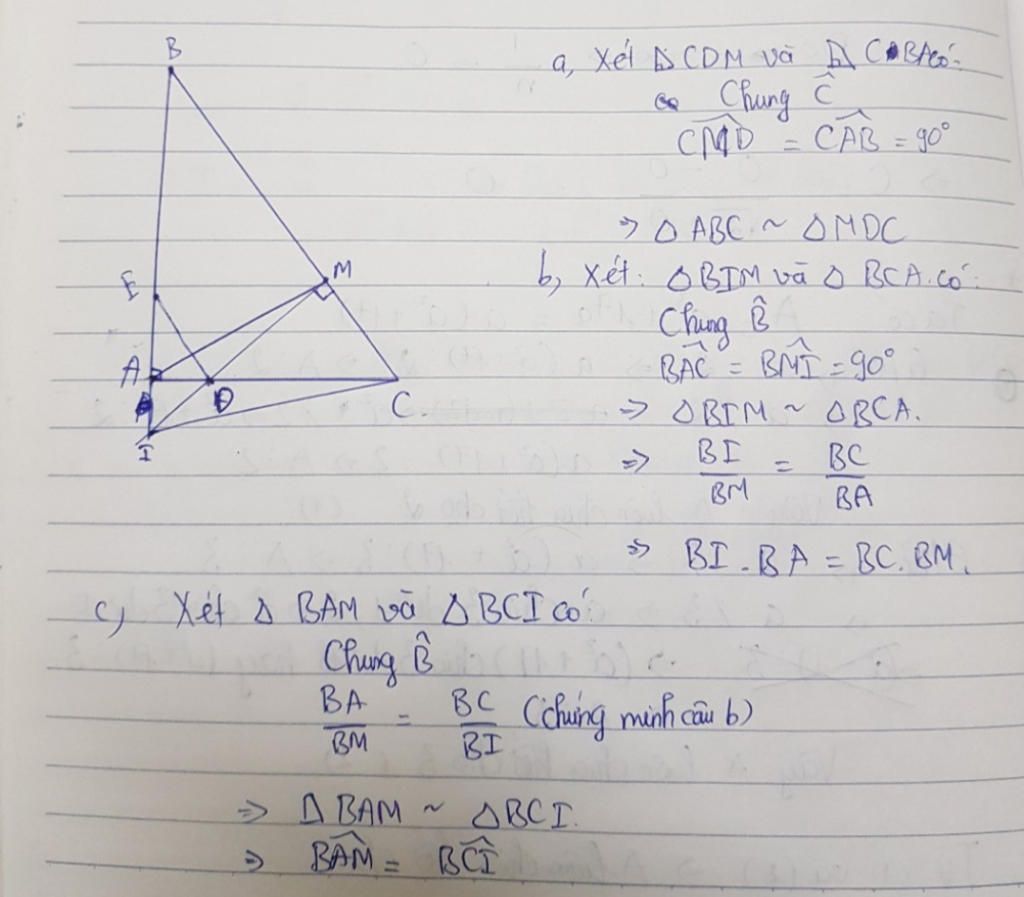 B
E
M
A
D
C
I
a, Xét △CDM và △CBA có:
Chung Ĉ
CMD = CAB = 90°
=> △ ABC ~ △ MDC
b, Xét: △BIM và △ BCA.có:
Chung B̂
BAC = BMI = 90°
=> △BIM ~ △BCA.
=> BI/BM = BC/BA
=> BI.BA = BC.BM.
c, Xét △ BAM và △BCI có:
Chung B̂
BA/BM = BC/BI (chứng minh câu b)
=> △ BAM ~ △BCI.
=> BAM = BCI